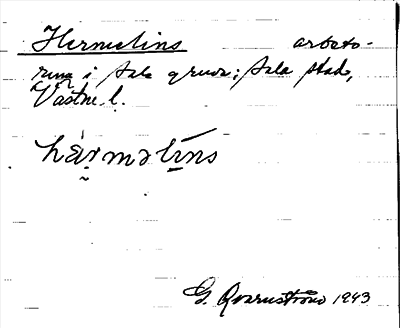 Hermelins arbets-
rum i Sala gruva; Sala stad,
Västm. l.
härməlīns
G. Kvarnström 1943